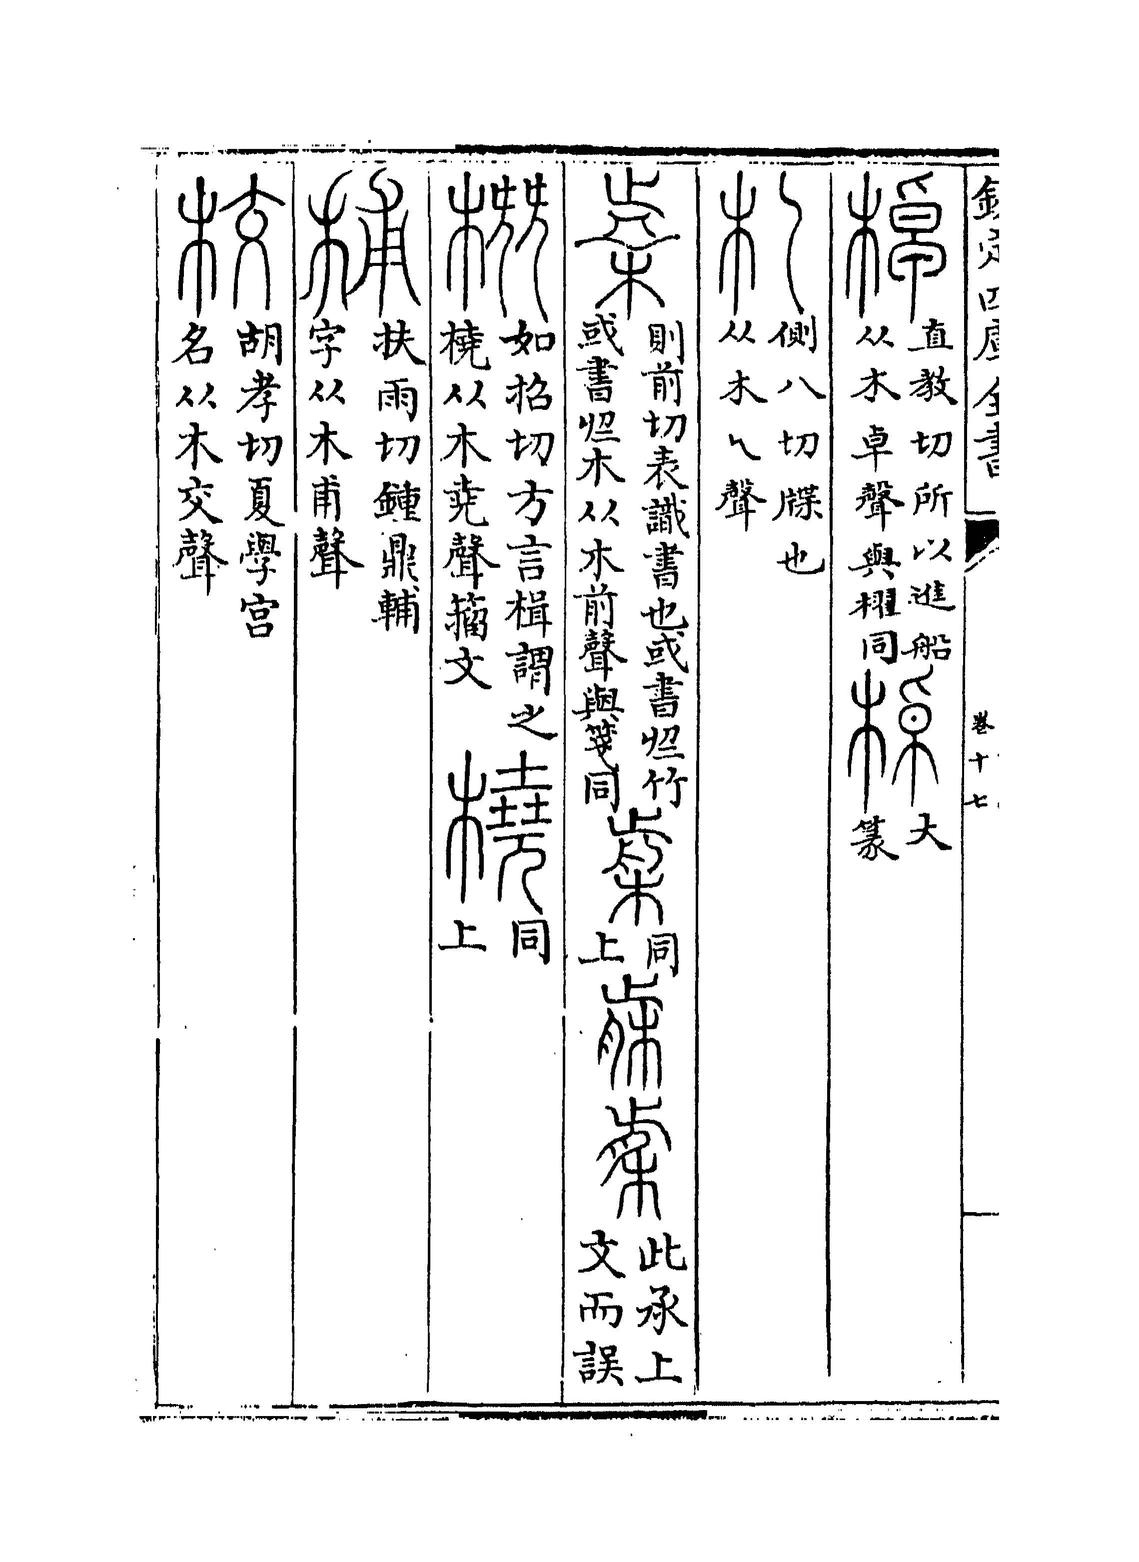 欽定四庫全書
卷十七
棹直教切所以進船从木卓聲與櫂同
大篆
札側八切牒也从木乀聲
則前切表識書也或書从竹或書从木从木前聲與箋同
同上
此承上文而誤
如招切方言楫謂之橈从木堯聲籀文
橈同上
㭪扶雨切鍾鼎輔字从木甫聲
校胡孝切夏學宮名从木交聲